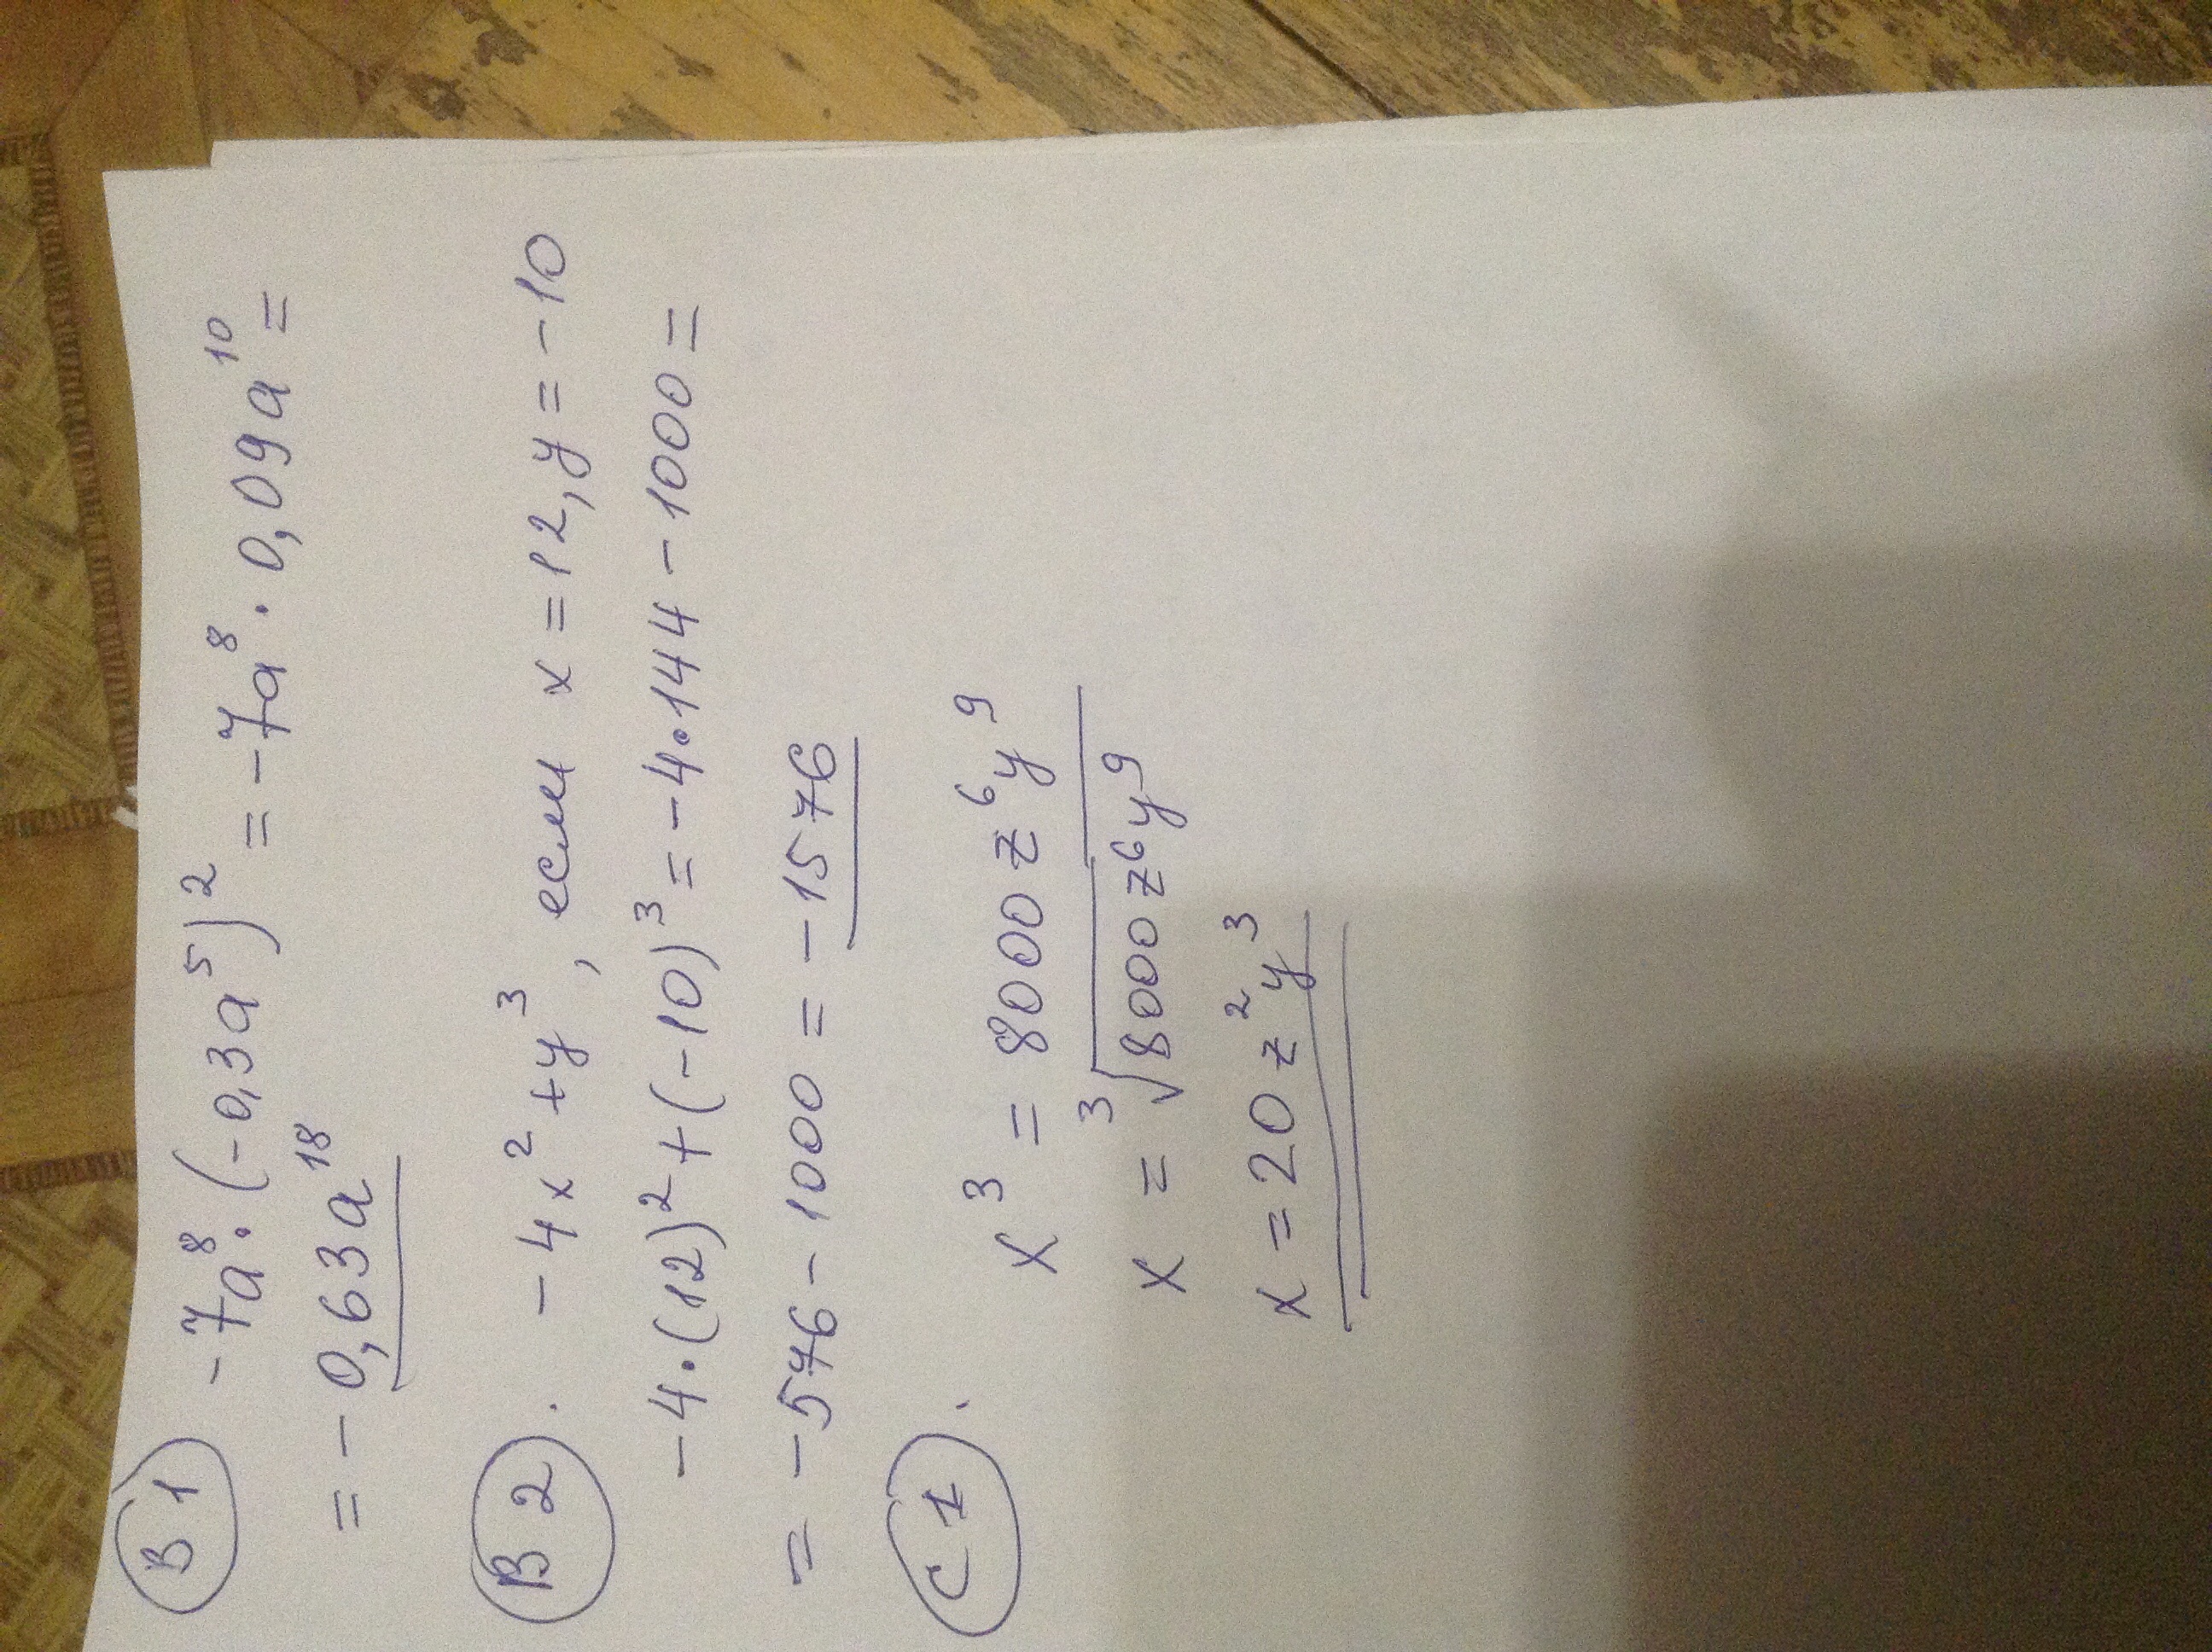 В 1 -7a⁸·(-0,3a⁵)² = -7a⁸·0,09a¹⁰ =
= -0,63a¹⁸
В 2. -4x²+y³, если x=12, y=-10
-4·(12)²+(-10)³=-4·144-1000=
= -576-1000 = -1576
С 1. x³ = 8000z⁶y⁹
x = ³√8000z⁶y⁹
x=20z²y³